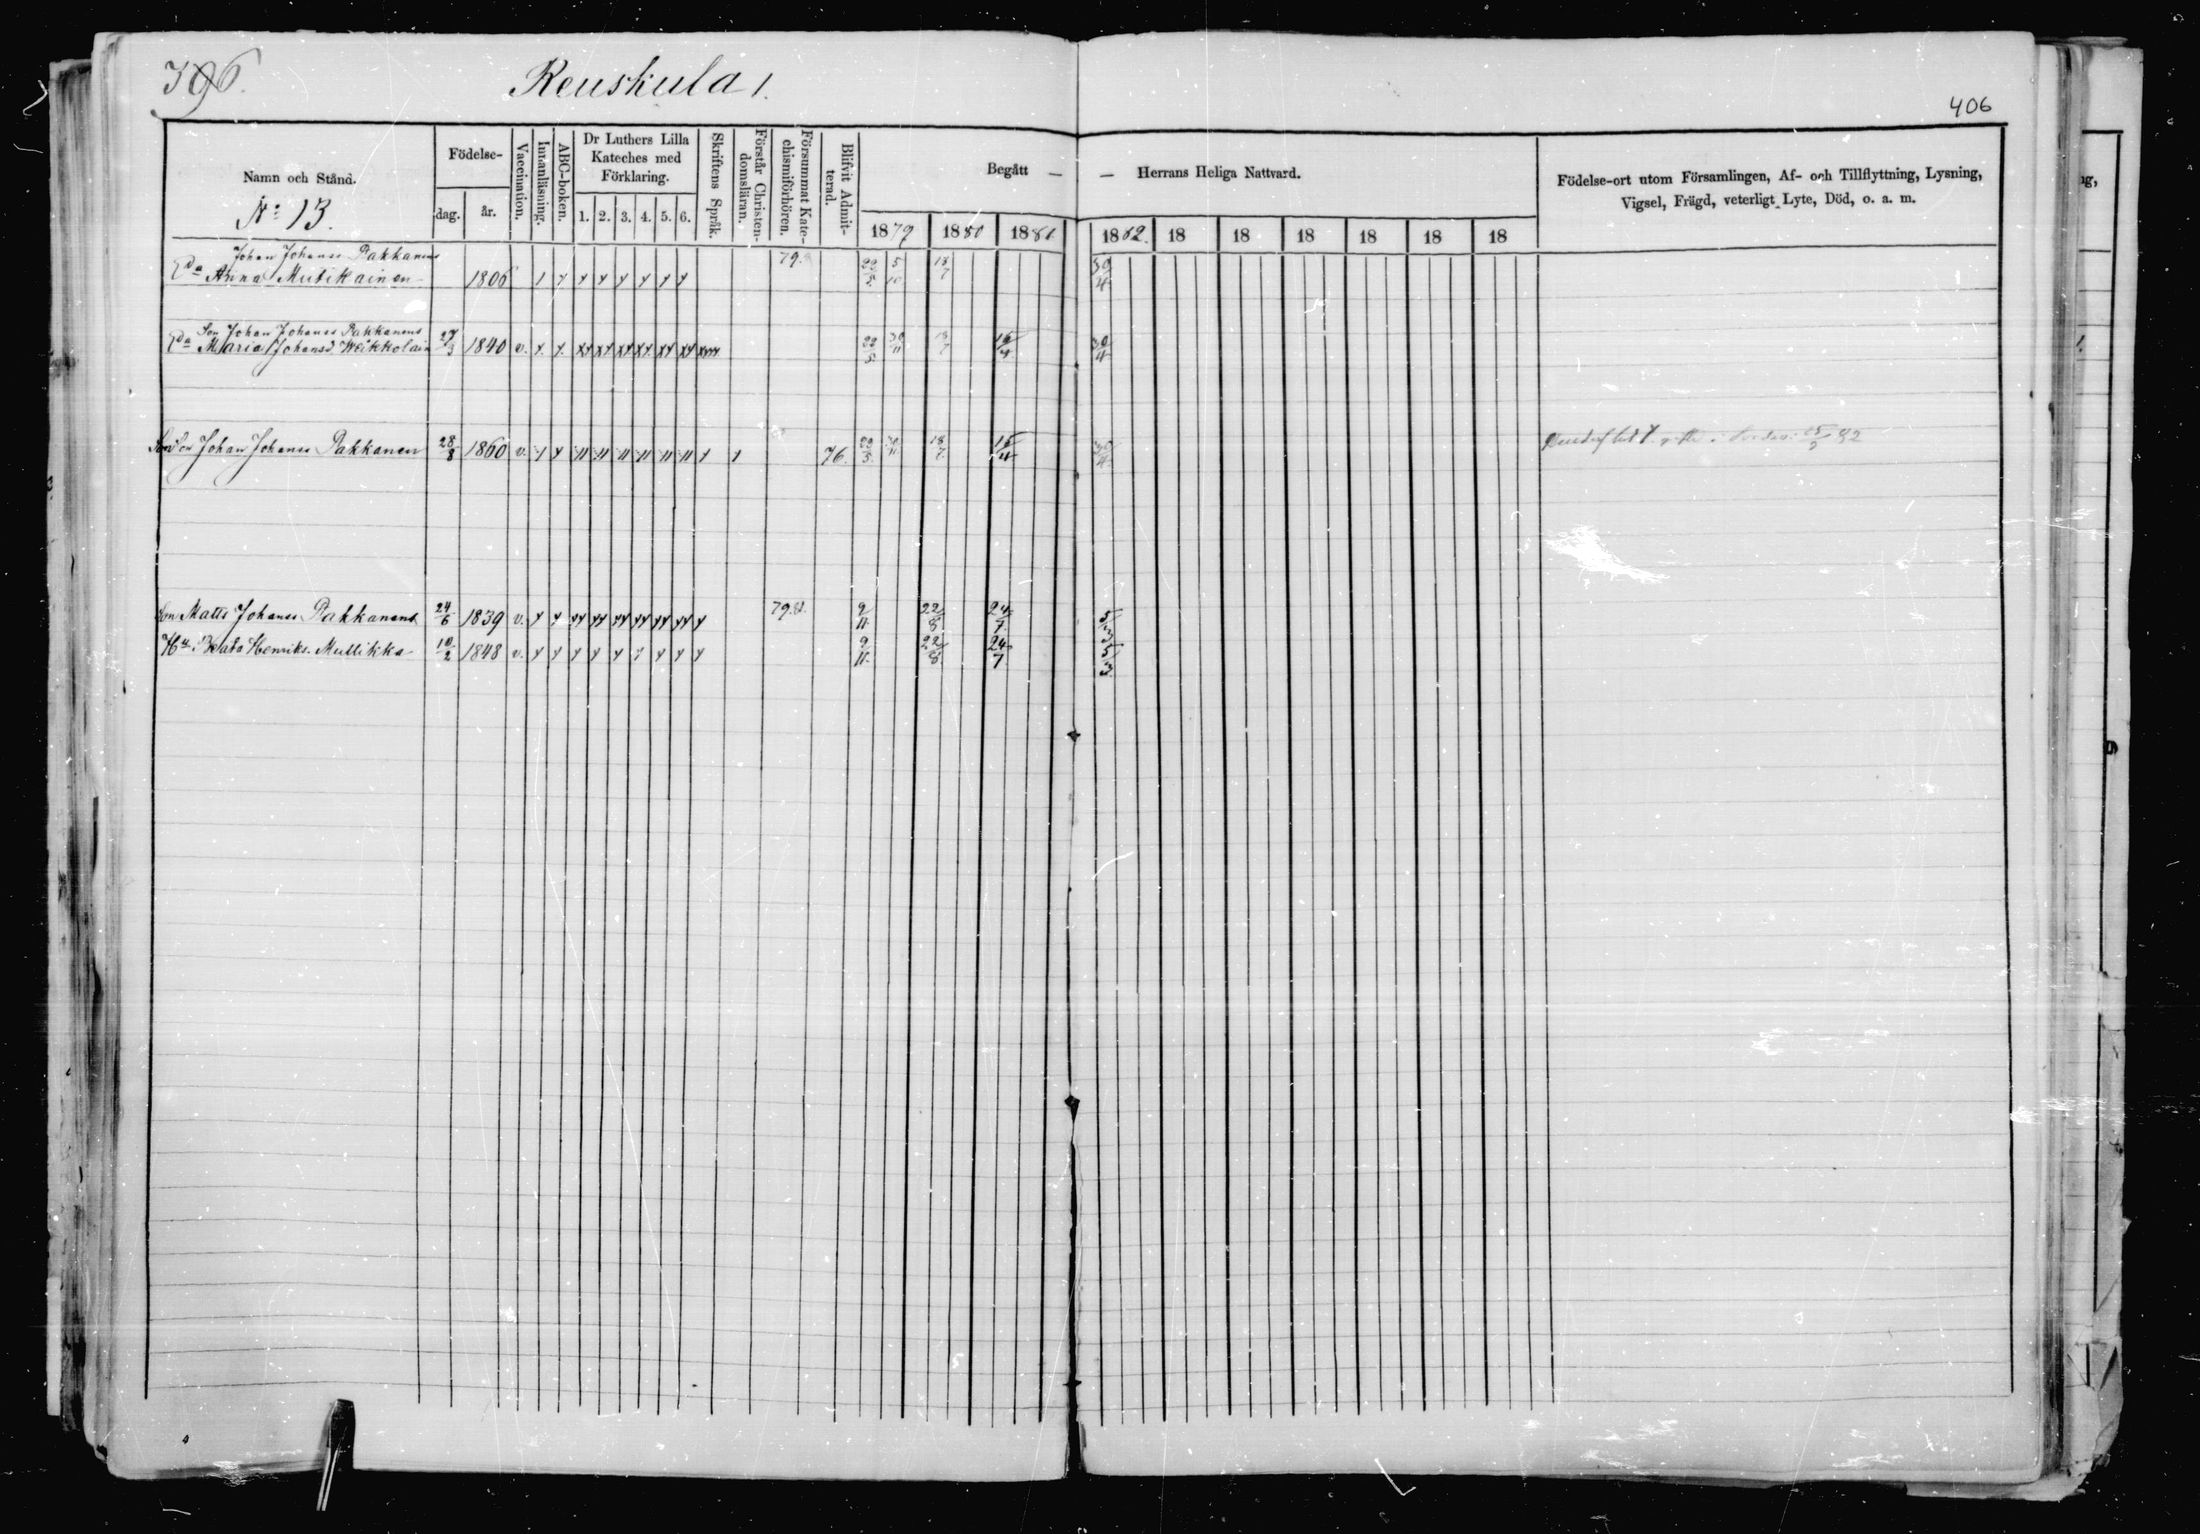 396.
Reuskula 1.
406
Namn och Stånd.
Födelse-
dag.
år.
Vaccination.
Innanläsning.
ABC-boken.
Dr Luthers Lilla
Kateches med
Förklaring.
1. 2. 3. 4. 5. 6.
Skriftens Språk.
Förstår Christen-
domsläran.
Försummat Kate-
chismiförhören.
Blifvit Admit-
terad.
Begått — — Herrans Heliga Nattvard.
1879 1880 1881 1882. 18 18 18 18 18 18
Födelse-ort utom Församlingen, Af- och Tillflyttning, Lysning,
Vigsel, Frägd, veterligt Lyte, Död, o. a. m.
No 13.
Johan Johanss Pakkanens
Eda Anna Mutikainen 1806 79. 22/5 5/10 18/7 30/4
Son Johan Johanss Pakkanens
Eda Maria Johansd. Weikkolain 27/3 1840 v. 22/5 30/11 18/7 15/4 30/4
Sons Son Johan Johanss Pakkanen 28/8 1860 v. 76. 22/5 30/11 18/7 15/4 30/4
Son Matts Johanss Pakkanens 24/6 1839 v. 79.81. 9/11 22/8 24/7 5/3
Hu Beata Henriks. Mullikka 10/2 1848 v. 9/11 22/8 24/7 5/3